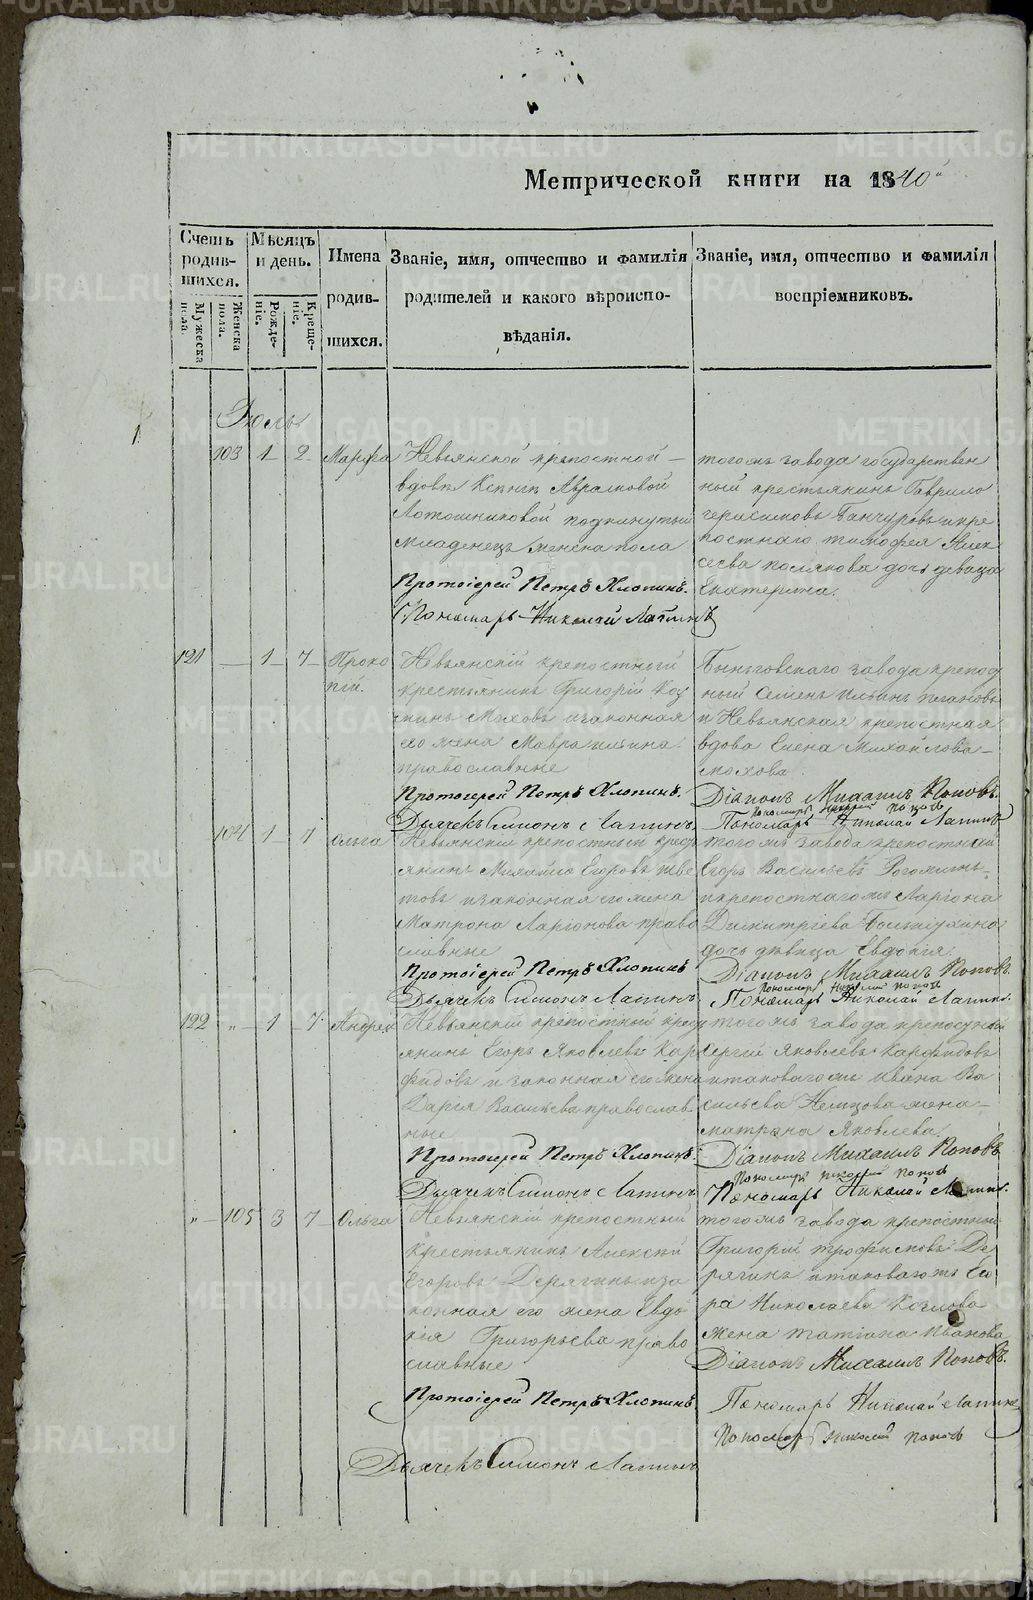 Метрической книги на 1840й
Счетъ родив-шихся.
Мужеска пола.
Женска пола.
Мѣсяцъ и день.
Рожде-ніе.
Креще-ніе.
Имена
родив-
шихся.
Званіе, имя, отчество и фамилія
родителей и какого вѣроиспо-
вѣданія.
Званіе, имя, отчество и фамилія
воспріемниковъ.
Іюль
103 1 2 Марфа
Невьянской крепостной
вдовы Авраамовой
Лотошниковой подкинутый
младенецъ женска пола
Протоіерей Петръ Хлопинъ.
Пономарь Николай Лапинъ
тогожъ завода государствен
ный крестьянинъ Гаврило
Герасимовъ и кре
постнаго Тимофея Алек
сеева Полякова дочь девица
Екатерина.
121 — 1 7 Проко
пій.
Невьянскій крепостный
крестьянинъ Григорій
Моховъ и законная
его жена Мавра Ильина
православные
Протоіерей Петръ Хлопинъ.
Дьячекъ Симіонъ Лапинъ
Быньговскаго завода крепост
ный Семенъ Ильинъ
и Невьянская крепостная
вдова Елена Михайлова
Мохова
Діаконъ Михаилъ Поповъ.
Пономарь Николай Поповъ
Пономарь Николай Лапинъ
104 1 7 Ольга
Невьянскій крепостный крест
янинъ Михайло Егоровъ
и законная его жена
Матрона Ларіонова право
славные
Протоіерей Петръ Хлопинъ
Дьячекъ Симіонъ Лапинъ
тогожъ завода крепостный
Егоръ Васильевъ
и крепостнагожъ Ларіона
Димитріева
дочь дѣвица Евдокія.
Діаконъ Михаилъ Поповъ.
Пономарь Николай Поповъ
Пономарь Николай Лапинъ.
122 „ 1 7 Андрей
Невьянскій крепостный крест
янинъ Егоръ Яковлевъ Кар
фидовъ и законная его жена
Дарья Васильева православ
ные
Протоіерей Петръ Хлопинъ.
Дьячекъ Симіонъ Лапинъ
тогожъ завода крепостный
Сергій Яковлевъ Карфидовъ
и таковагожъ Ивана Ва
сильева Немцова жена
Матрона Яковлева.
Діаконъ Михаилъ Поповъ.
Пономарь Николай Поповъ
Пономарь Николай Лапинъ.
„ 105 3 7 Ольга
Невьянскій крепостный
крестьянинъ Алексій
Егоровъ Дерягинъ и за
конная его жена Евдо
кія Григорьева право
славные
Протоіерей Петръ Хлопинъ
Дьячекъ Симіонъ Лапинъ
тогожъ завода крепостный
Григорій Трофимовъ Де
рягинъ и таковагожъ Его
ра Николаева Козлова
жена Татіана Иванова
Діаконъ Михаилъ Поповъ.
Пономарь Николай Лапинъ
Пономарь Николай Поповъ